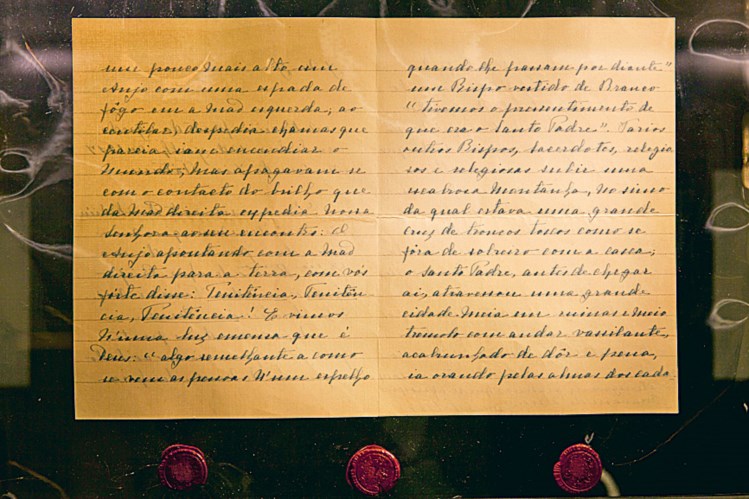 um pouco mais alto um
Anjo com uma espada de
fôgo em a mão esquerda; ao
centelar, despedia chamas que
parecia iam encendiar o
mundo; mas apagavam-se
com o contacto do brilho que
da mão direita expedia Nossa
Senhora ao seu encontro: O
Anjo apontando com a mão
direita para a terra, com vós
forte disse: Penitência, Penitên-
cia, Penitência! E vimos
N'uma luz emensa que é
Deus: "algo semelhante a como
se vem as pessoas N'um espelho
quando lhe passam por diante"
um Bispo vestido de Branco
"tivemos o pressentimento de
que era o Santo Padre". Varios
outros Bispos, sacerdotes, religio
sos e religiosas subir uma
escabrosa montanha, no simo
da qual estava uma grande
Cruz de troncos toscos como se
fôra de sobreiro com a casca;
o Santo Padre, antes de chegar
aí, atravessou uma grande
cidade meia em ruinas e meio
tremulo com andar vassilante,
acabrunhado de dôr e pena,
ia orando pelas almas dos cada-